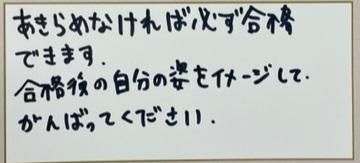 あきらめなければ必ず合格
できます.
合格後の自分の姿をイメージして.
がんばってください.